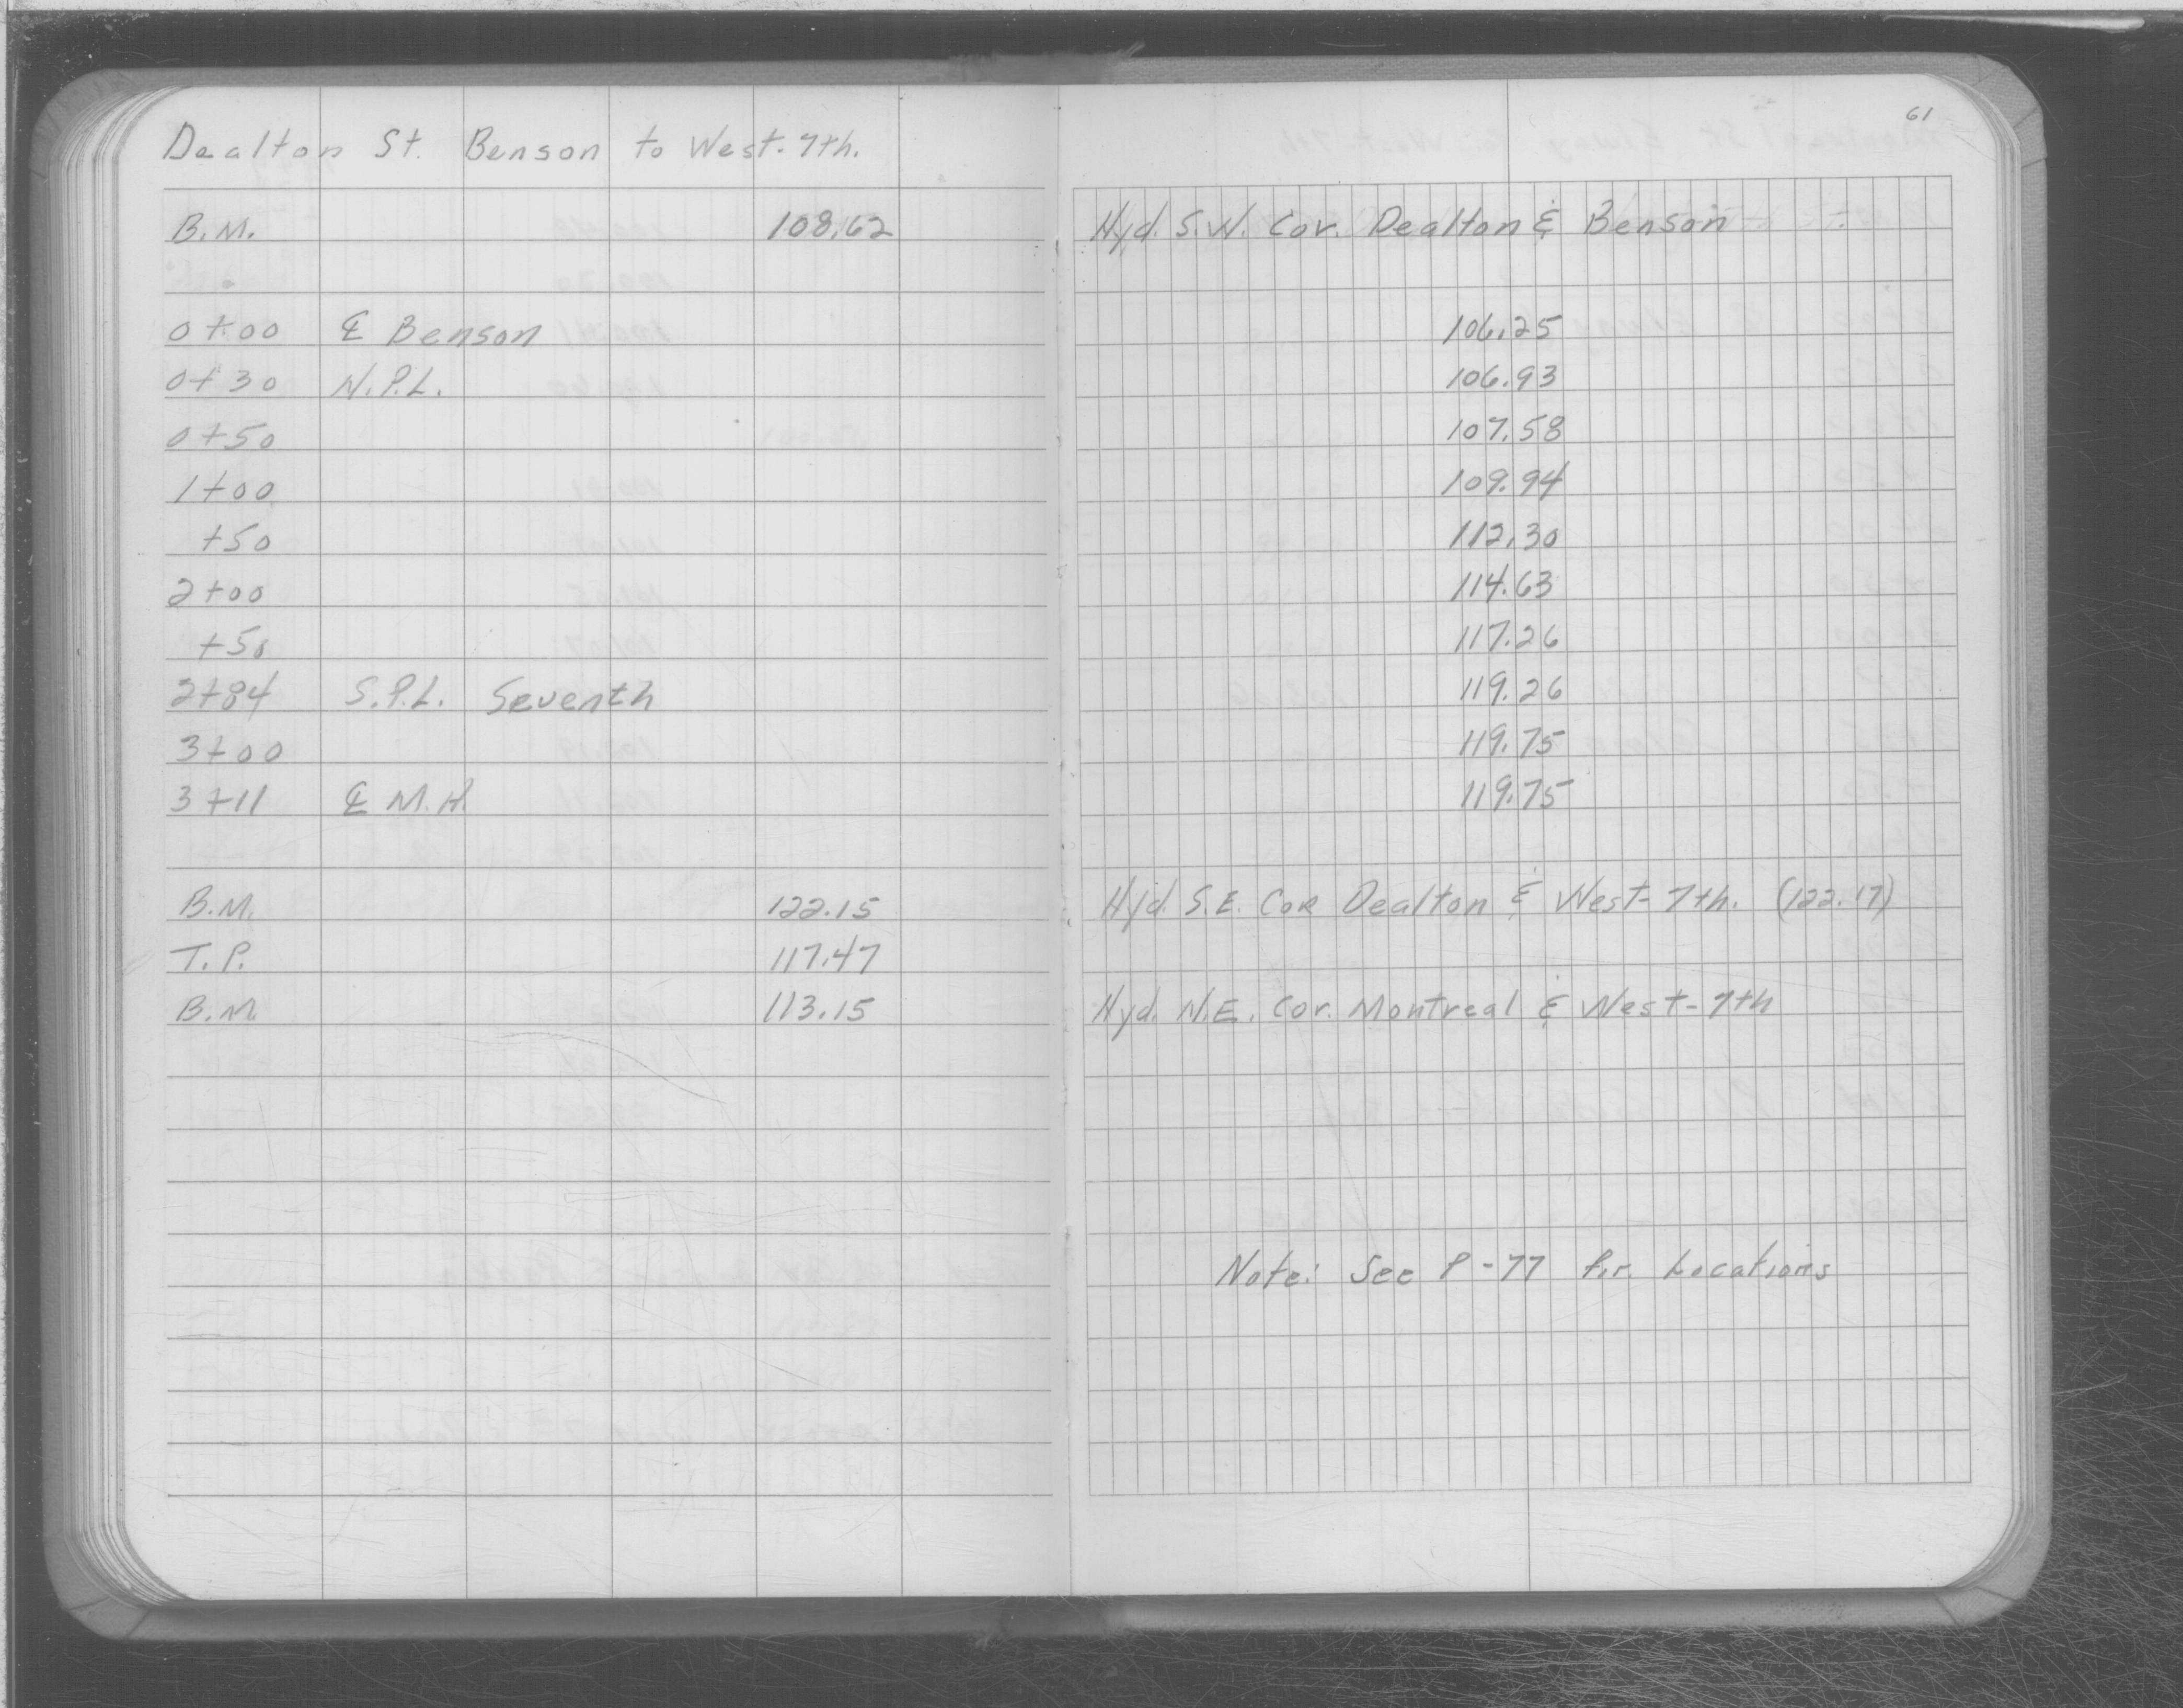 61
Dealton St. Benson to West-7th.
B.M. 108.62 Hyd. S.W. Cor. Dealton & Benson
0+00 ℄ Benson 106.25
0+30 N.P.L. 106.93
0+50 107.58
1+00 109.94
+50 112.30
2+00 114.63
+50 117.26
2+84 S.P.L. Seventh 119.26
3+00 119.75
3+11 ℄ M.H. 119.75
B.M. 122.15 Hyd. S.E. Cor Dealton & West-7th. (122.17)
T.P. 117.47
B.M. 113.15 Hyd. N.E. Cor. Montreal & West-7th
Note: See P-77 for Locations